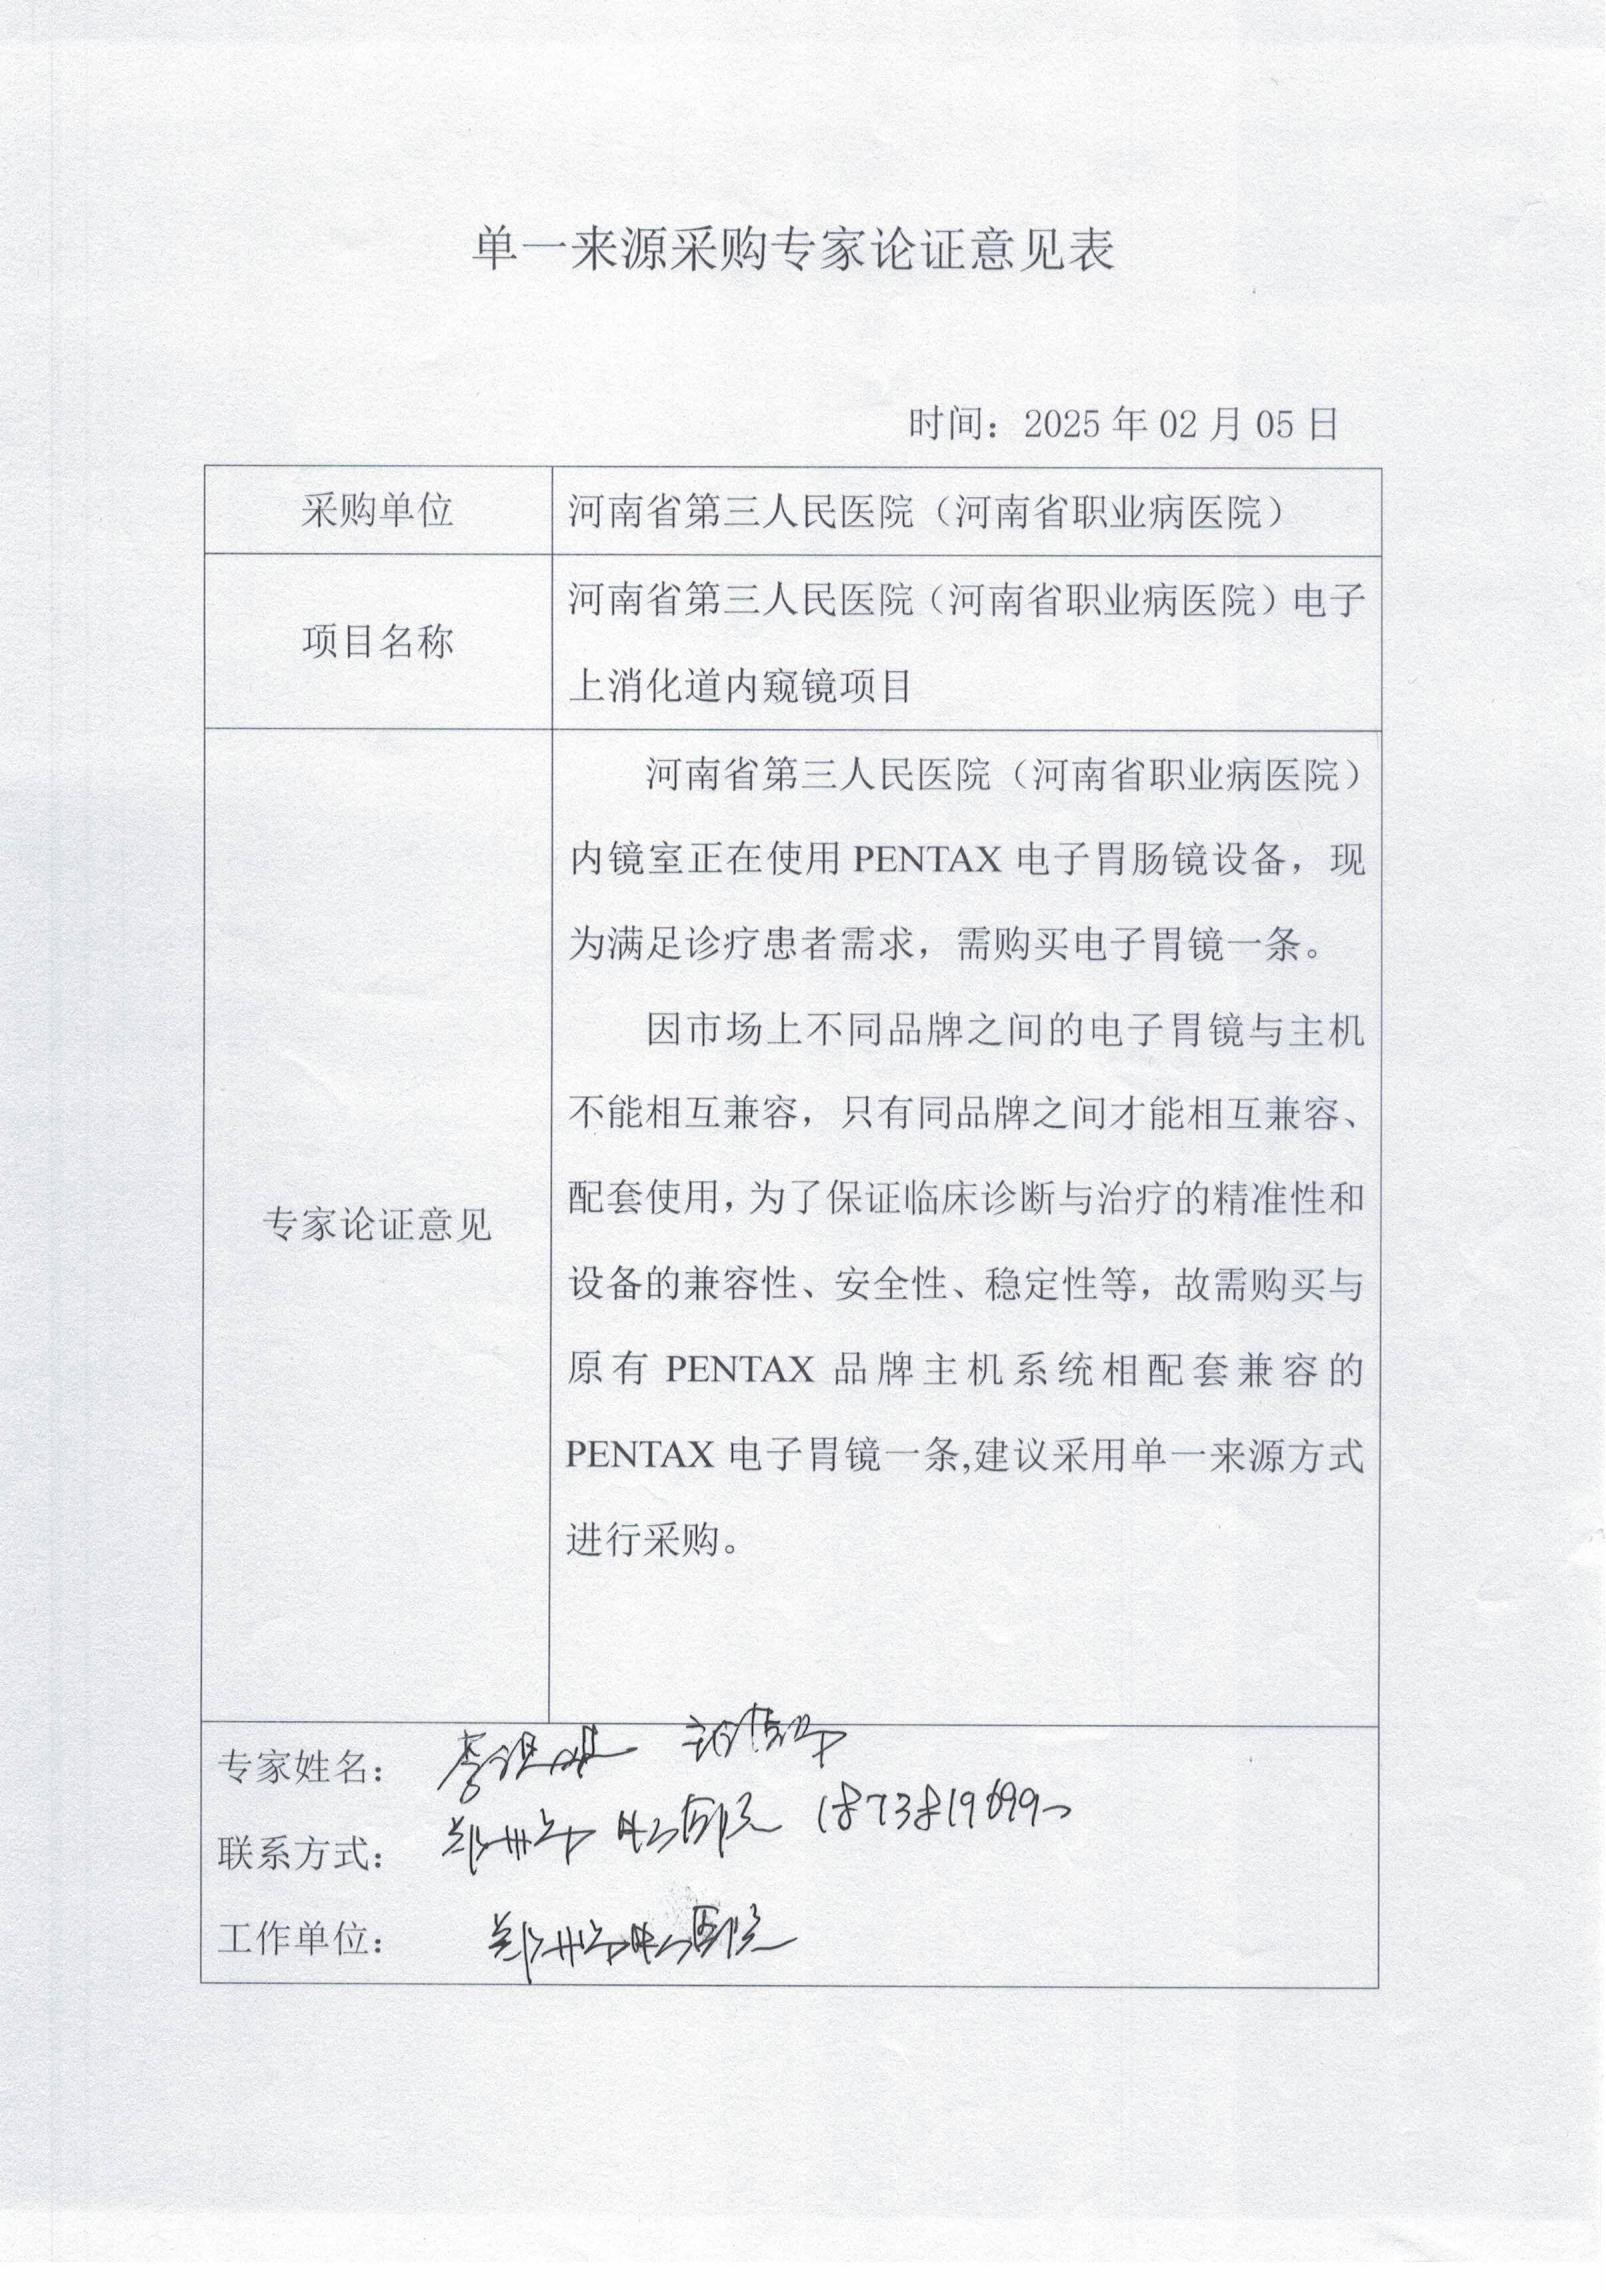 单一来源采购专家论证意见表
时间：2025年02月05日
采购单位
河南省第三人民医院（河南省职业病医院）
项目名称
河南省第三人民医院（河南省职业病医院）电子
上消化道内窥镜项目
专家论证意见
河南省第三人民医院（河南省职业病医院）
内镜室正在使用 PENTAX 电子胃肠镜设备，现
为满足诊疗患者需求，需购买电子胃镜一条。
因市场上不同品牌之间的电子胃镜与主机
不能相互兼容，只有同品牌之间才能相互兼容、
配套使用，为了保证临床诊断与治疗的精准性和
设备的兼容性、安全性、稳定性等，故需购买与
原有 PENTAX 品牌主机系统相配套兼容的
PENTAX 电子胃镜一条,建议采用单一来源方式
进行采购。
专家姓名：
联系方式：郑州市 医院
工作单位：郑州市 医院